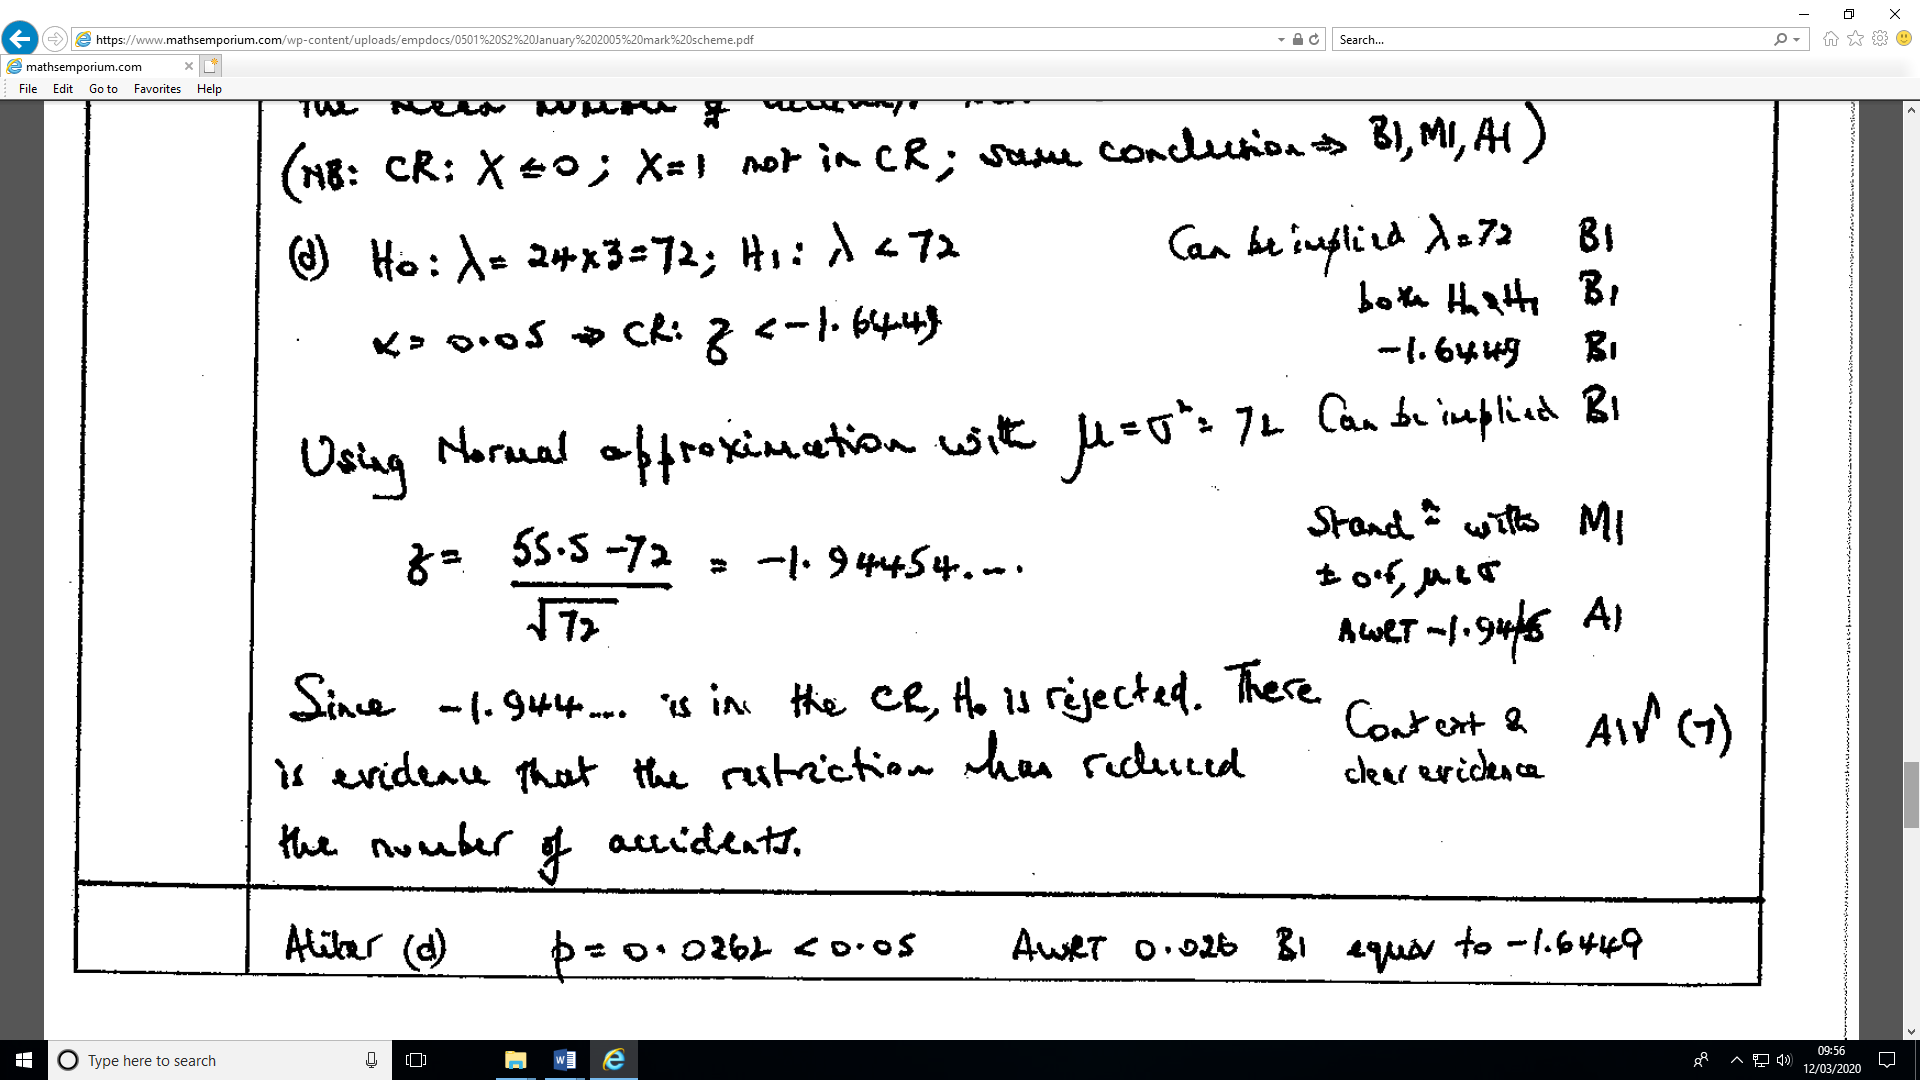 https://www.mathsemporium.com/wp-content/uploads/empdocs/0501%20S2%20January%202005%20mark%20scheme.pdf
Search...
mathsemporium.com
File Edit Go to Favorites Help
the mean number of accidents
(NB: CR: X ≤ 0; X=1 not in CR; same conclusion ⇒ B1, M1, A1)
(d) H0: λ = 24×3=72; H1: λ < 72 Can be implied λ=72 B1
both H0 & H1 B1
α = 0.05 ⇒ CR: z < -1.6449 -1.6449 B1
Using Normal approximation with μ = σ² = 72 Can be implied B1
z = 55.5 - 72 / √72 = -1.94454.... Stand n with M1
± 0.5, μ & σ
AWRT -1.94/5 A1
Since -1.944.... is in the CR, H0 is rejected. There Context & A1√ (7)
is evidence that the restriction has reduced clear evidence
the number of accidents.
Aliter (d) p = 0.0262 < 0.05 AWRT 0.026 B1 equiv to -1.6449
Type here to search
09:56
12/03/2020